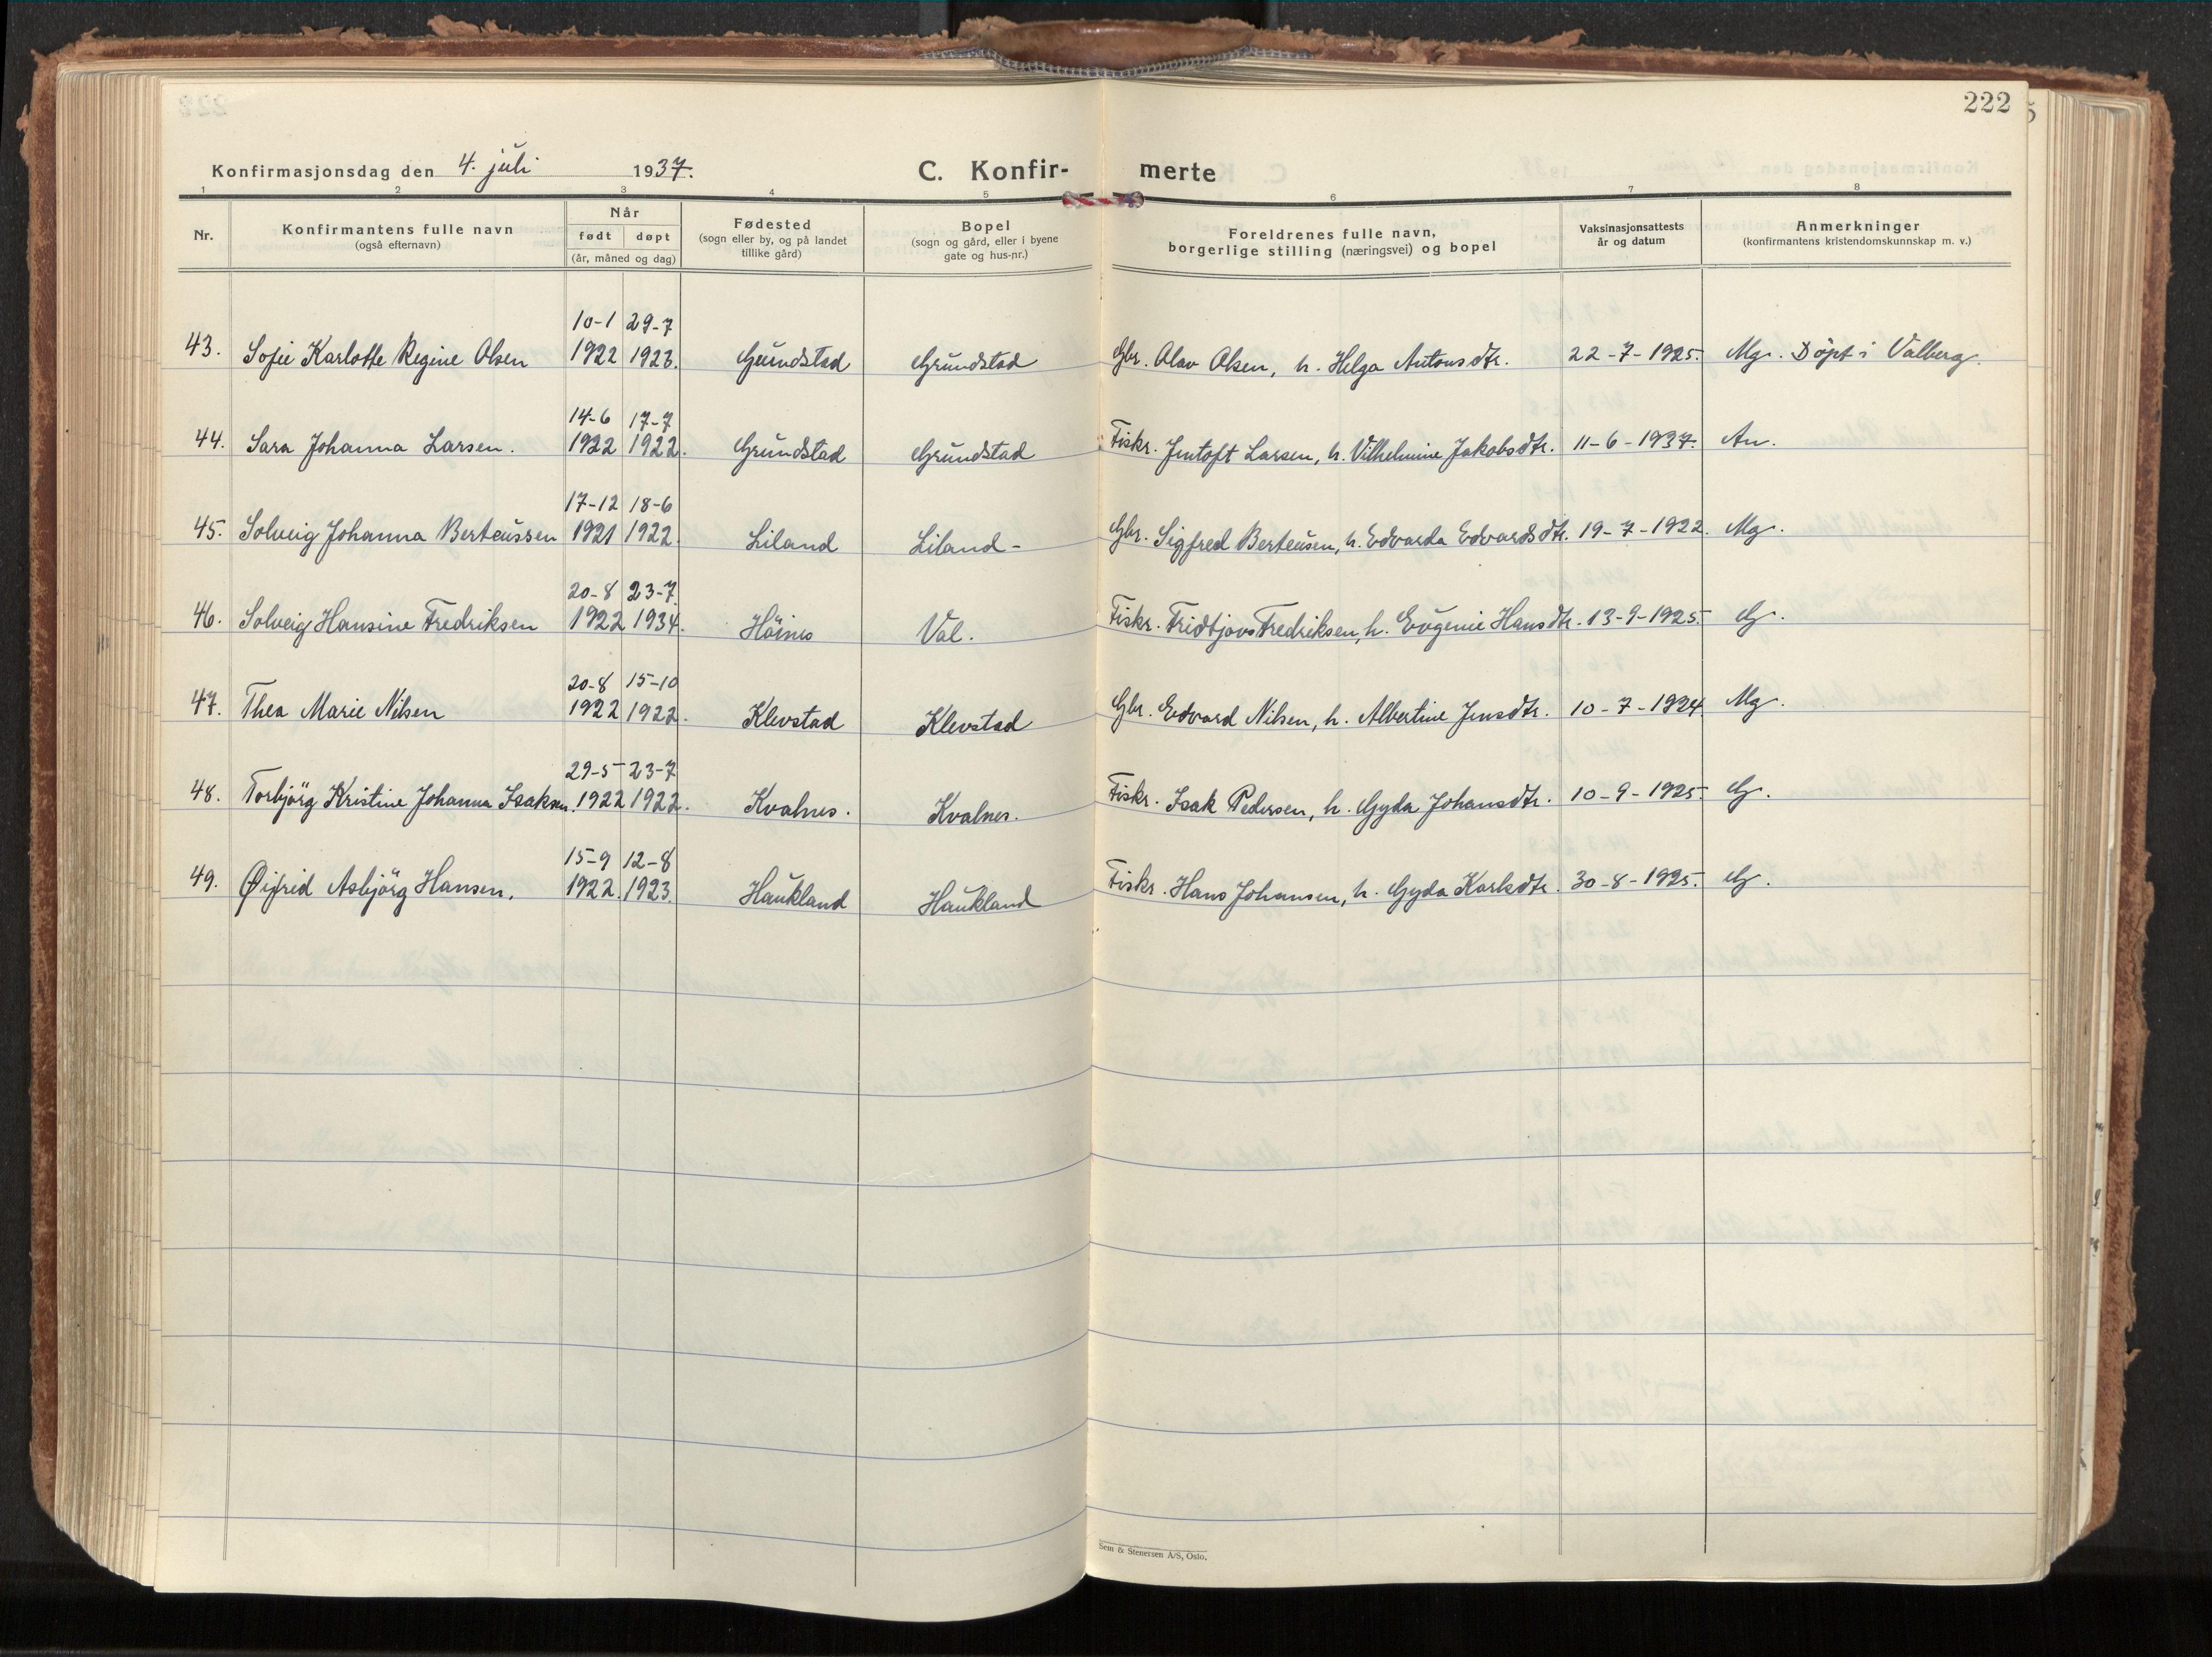 222
Konfirmasjonsdag den 4. juli 1937.
C. Konfir- merte
1 2 3 4 5 6 7 8
Nr.
Konfirmantens fulle navn
(også efternavn)
Når
født døpt
(år, måned og dag)
Fødested
(sogn eller by, og på landet
tillike gård)
Bopel
(sogn og gård, eller i byene
gate og hus-nr.)
Foreldrenes fulle navn,
borgerlige stilling (næringsvei) og bopel
Vaksinasjonsattests
år og datum
Anmerkninger
(konfirmantens kristendomskunnskap m. v.)
10-1 29-7
43. Sofie Karlotte Regine Olsen 1922 1923. Grundstad Grundstad Gbr. Olav Olsen, h. Helga Antonsdtr. 22-7-1925. Mg. Döpt i Valberg.
14-6 17-7
44. Sara Johanna Larsen. 1922 1922. Grundstad Grundstad Fiskr. Jentoft Larsen, h. Vilhelmine Jakobsdtr. 11-6-1937. An.
17-12 18-6
45. Solveig Johanna Berteussen 1921 1922. Liland Liland- Gbr. Sigfred Berteusen, h. Edvarda Edvardsdtr. 19-7-1922. Mg.
20-8 23-7
46. Solveig Hansine Fredriksen 1922 1934. Höines Val. Fiskr. Fridtjovs Fredriksen, h. Eugenie Hansdtr. 13-9-1925. G.
20-8 15-10
47. Thea Marie Nilsen 1922 1922. Klevstad Klevstad Gbr. Edvard Nilsen, h. Albertine Jensdtr. 10-7-1924 Mg.
29-5 23-7
48. Torbjörg Kristine Johanna Isaksen. 1922 1922. Kvalnes. Kvalnes. Fiskr. Isak Pedersen, h. Gyda Johansdtr. 10-9-1925. G.
15-9 12-8
49. Øifrid Asbjörg Hansen. 1922. 1923. Haukland Haukland Fiskr. Hans Johansen, h. Gyda Karlsdtr. 30-8-1925. G.
Sem & Stenersen A/S, Oslo.